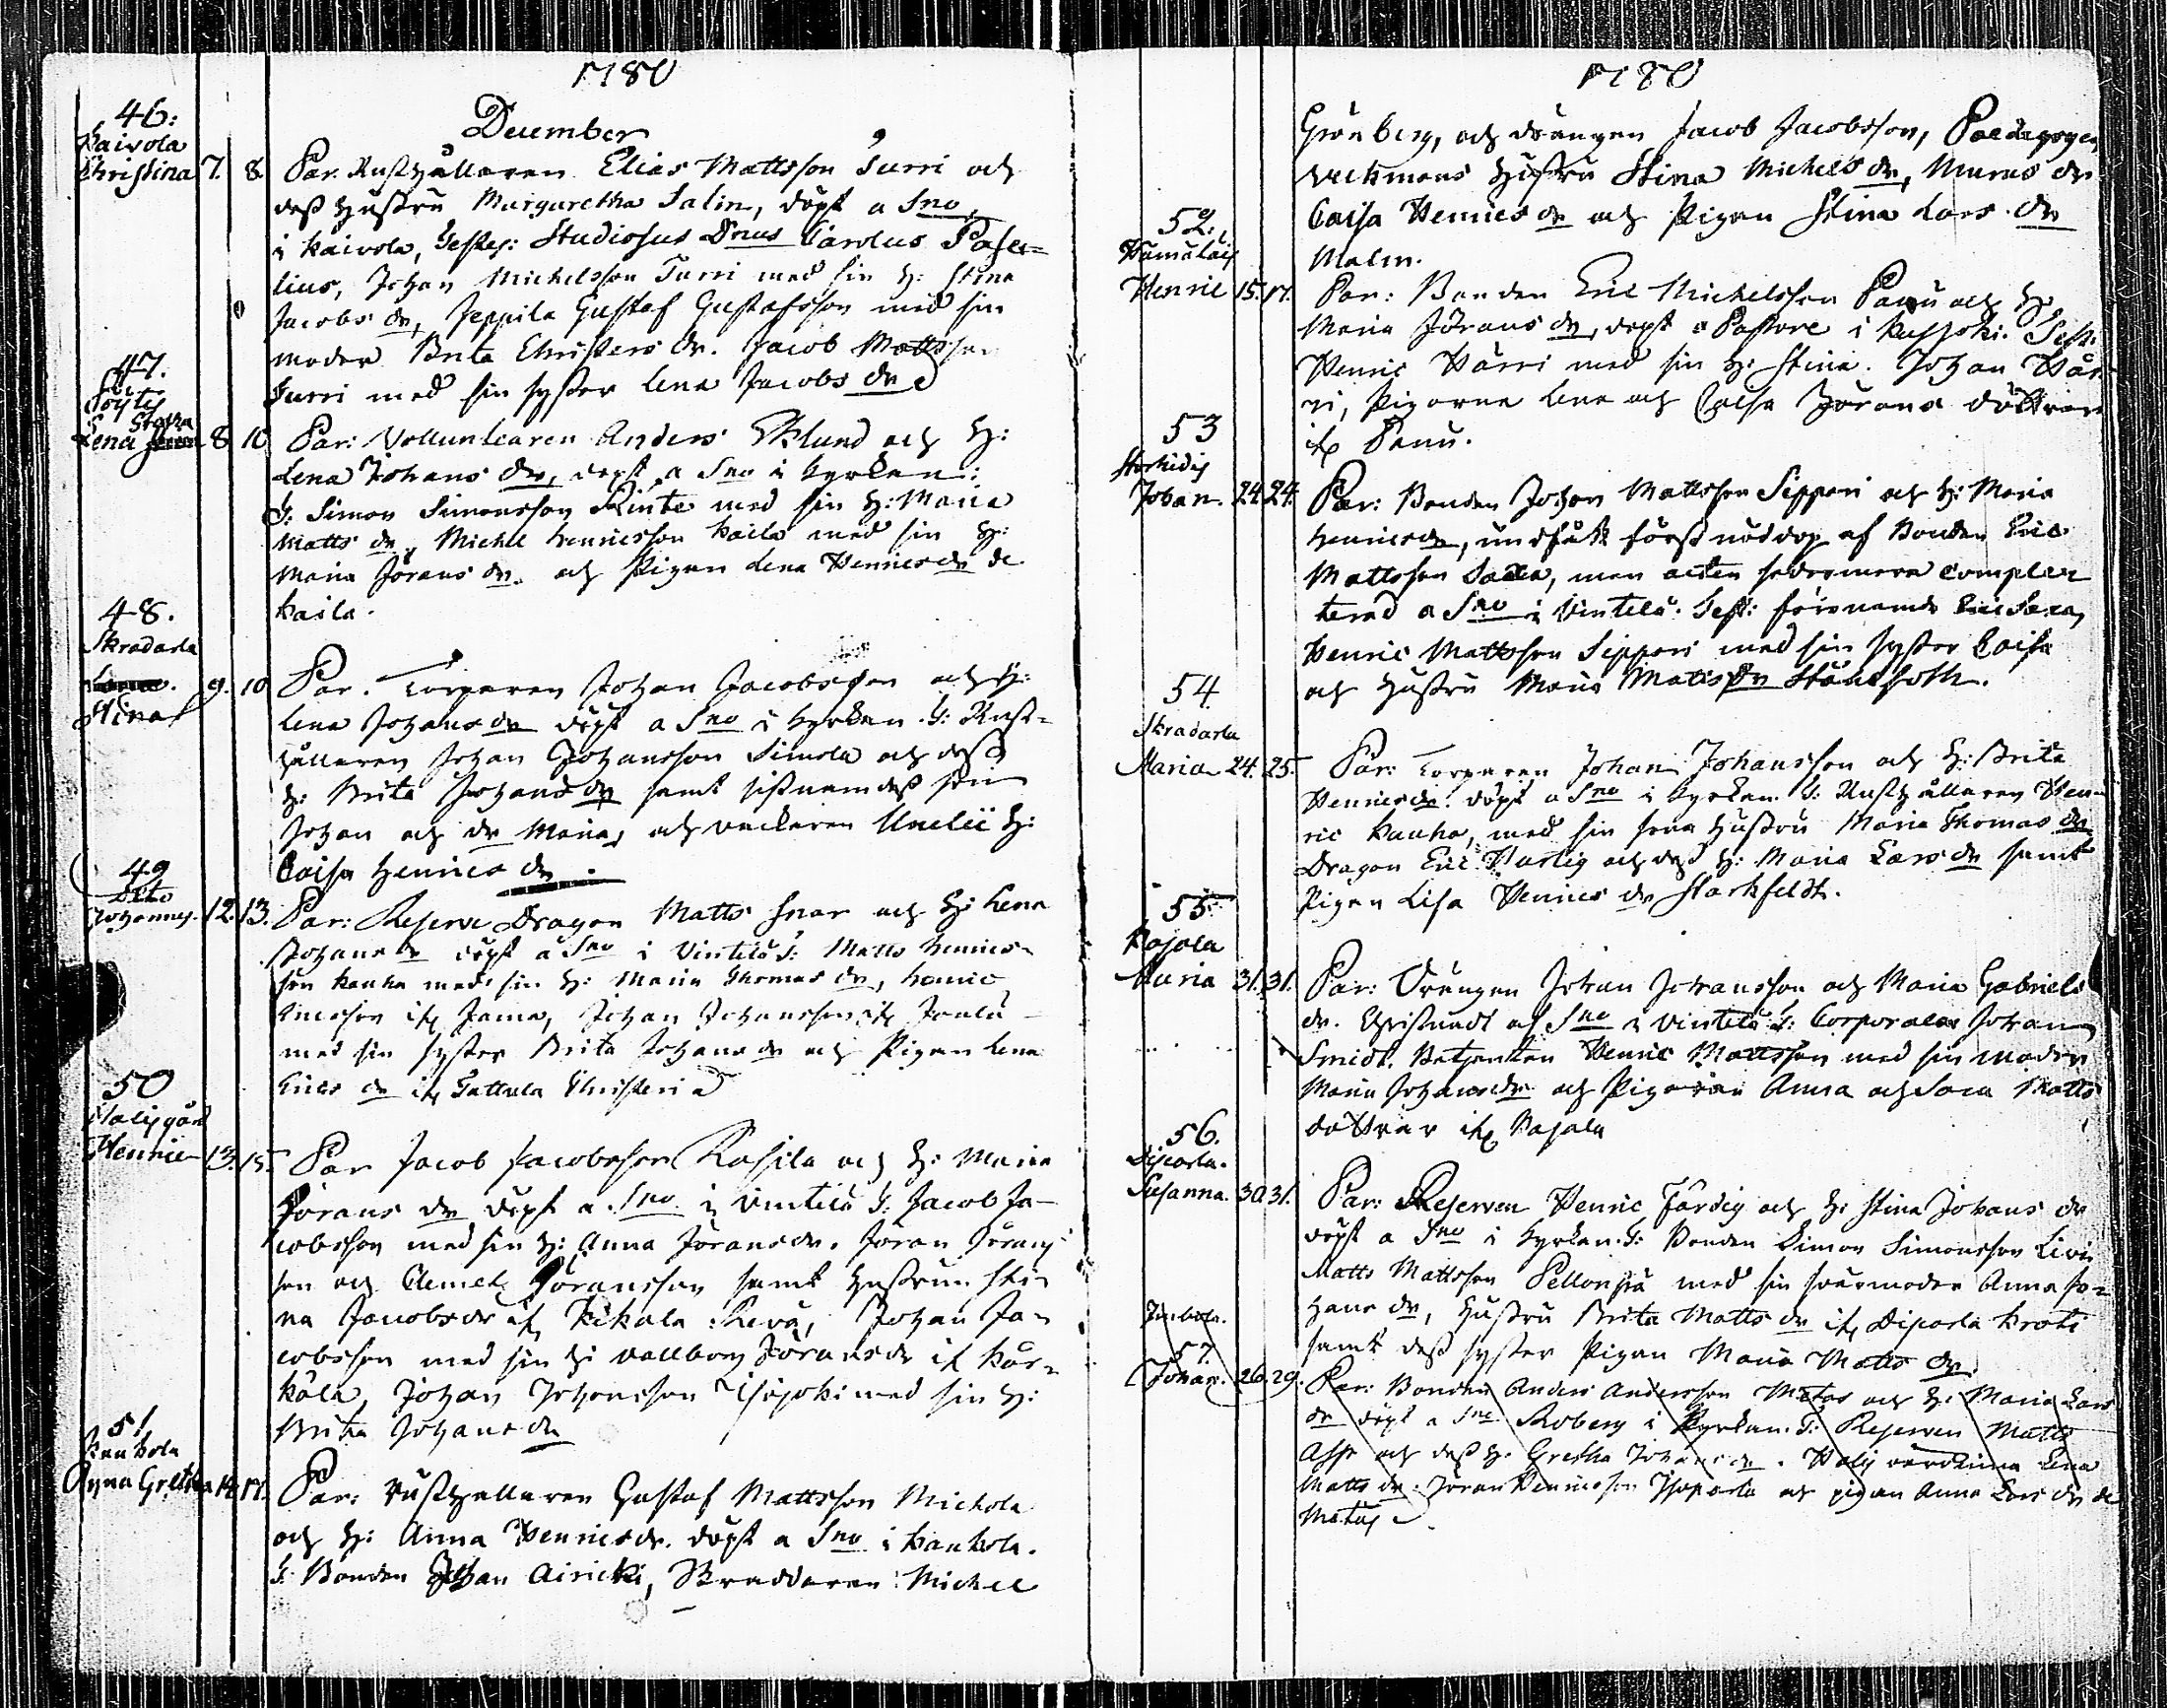 1780
December
46:
Kaivola
Christina 7. 8. Par. Rusthållaren Elias Mattsson Turri och
dess hustru Margaretha Salin, döpt a Sno,
i Kaivola, Testes: Studiosus Dnus Carolus Paser=
lius, Johan Michelsson Turri med sin H: Stina
Jacobs dr, Jeppila Gustaf Gustafsson med sin
moder Brita Christers dr. Jacob Mattsson
Turri med sin syster Lena Jacobs dr
47.
Söyte
Stacka
Lena 8 10 Par: Volluntearen Anders Eklund och H:
Lena Johans dr, döpt a Sno i Kyrkan:
T: Simon Simonsson Kinte med sin H: Maria
Matts dr, Michel Henricsson Kaila med sin H:
Maria Jörans dr. och Pigan Lena Henrics dr de
Kaila.
48.
Skradarla
Stina 9. 10 Par. Torparen Johan Jacobsson och H:
Lena Johans dr döpt a Sno i Kyrkan. T: Rust=
hållaren Johan Johansson Simola och dess
H: Brita Johans dr samt sistnemdes son
Johan och dr Maria, och H:
Caisa Henrics dr.
49
Dito
Johannes. 12. 13. Par: Reserve Dragon Matts Snar och H: Lena
Johans dr döpt a Sno i Vintelä T: Matts Henrics=
son Kauha med sin H: Maria Thomas dr, Henric
Ericsson ifr Jama, Johan Johansson ifr Joulu
med sin syster Brita Johans dr och Pigan Lena
Erics dr ifr Tattula
50
Henric 13. 15. Par Jacob Jacobsson Rasila och H: Maria
Jörans dr döpt a Sno i Vintelä T: Jacob Ja-
cobsson med sin H: Anna Jörans dr. Jöran Jörans
son och Clemet Jöransson samt hustrun Sti-
na Jacobs dr ifr Kikala Johan Ja-
cobsson med sin H: Vallborg Jörans dr if Kär-
kälä, Johan Johansson Isojoki med sin H:
Brita Johans dr
51
Kankola
Anna Gretha 14. 17. Par: Rusthållaren Gustaf Mattsson Michola
och H: Anna Henrics dr. döpt a Sno i Kankola.
T: Bonden Johan Airicki, Skraddaren Michel
1780
Grönberg, och drängen Jacob Jacobsson, Paedagogen
hustru Stina Michels dr, Murus dr
Caisa Henrics dr och Pigan Stina Lars dr
Malm.
52.
Henric 15. 17. Par: Bonden Eric Michelsson Panu och H:
Maria Jörans dr, döpt a Pastore i Test.
Henric Härri med sin H: Stina. Johan Här
ri, Pigorna Lena och Caisa Jörans döttrar
if Panu.
53
Johan. 24. 24. Par: Bonden Johan Mattsson Sippari och H: Maria
Henrics dr, undfått först nöddop af Bonden Eric
Mattsson Saxa, men acten sedermera comple-
terad a Sno i Vintelä. Test: förenamnde Eric Saxa,
Henric Mattsson Sippari med sin syster Caisa
och hustru Maria Matts dr
54.
Skradarla
Maria 24. 25. Par: Torparen Johan Johansson och H: Brita
Henrics dr. döpt a Sno i Kyrkan. T: Rusthållaren Hen-
ric Kauha, med sin hustru Maria Thomas dr
Dragon Eric Hurtig och dess H: Maria Lars dr samt
Pigan Lisa Henrics dr Starkfeldt.
55.
Kojola
Maria 31. 31. Par: Drängen Johan Johansson och Maria Gabriels
dr. Christnadt af Sno i Vintelä T: Corporalen Johan
Smidt. Henric Mattsson med sin moder
Maria Johans dr och Pigorna Anna och Sara Matts
döttrar ifr Kojola
56.
Diparla.
Susanna. 30. 31. Par: Reserven Henric Färdig och H: Stina Johans dr
döpt a Sno i Kyrkan. T: Bonden Simon Simonsson
Matts Mattsson Pellonpä med sin svärmoder Anna Jo-
hans dr, hustru Brita Matts dr ifr Diparla Kroti
samt dess syster Pigan Maria Matts dr
57.
Johan. 26. 29. Par: Bonden Anders Andersson Metas och H: Maria Lars
dr döpt a Sno. Moberg i Kyrkan. T: Reserven Matts
Asp och dess H: Gretha Johans dr. värdinna Lena
Matts dr. Jöran Henricsson och pigan Anna Lars dr de
Metas